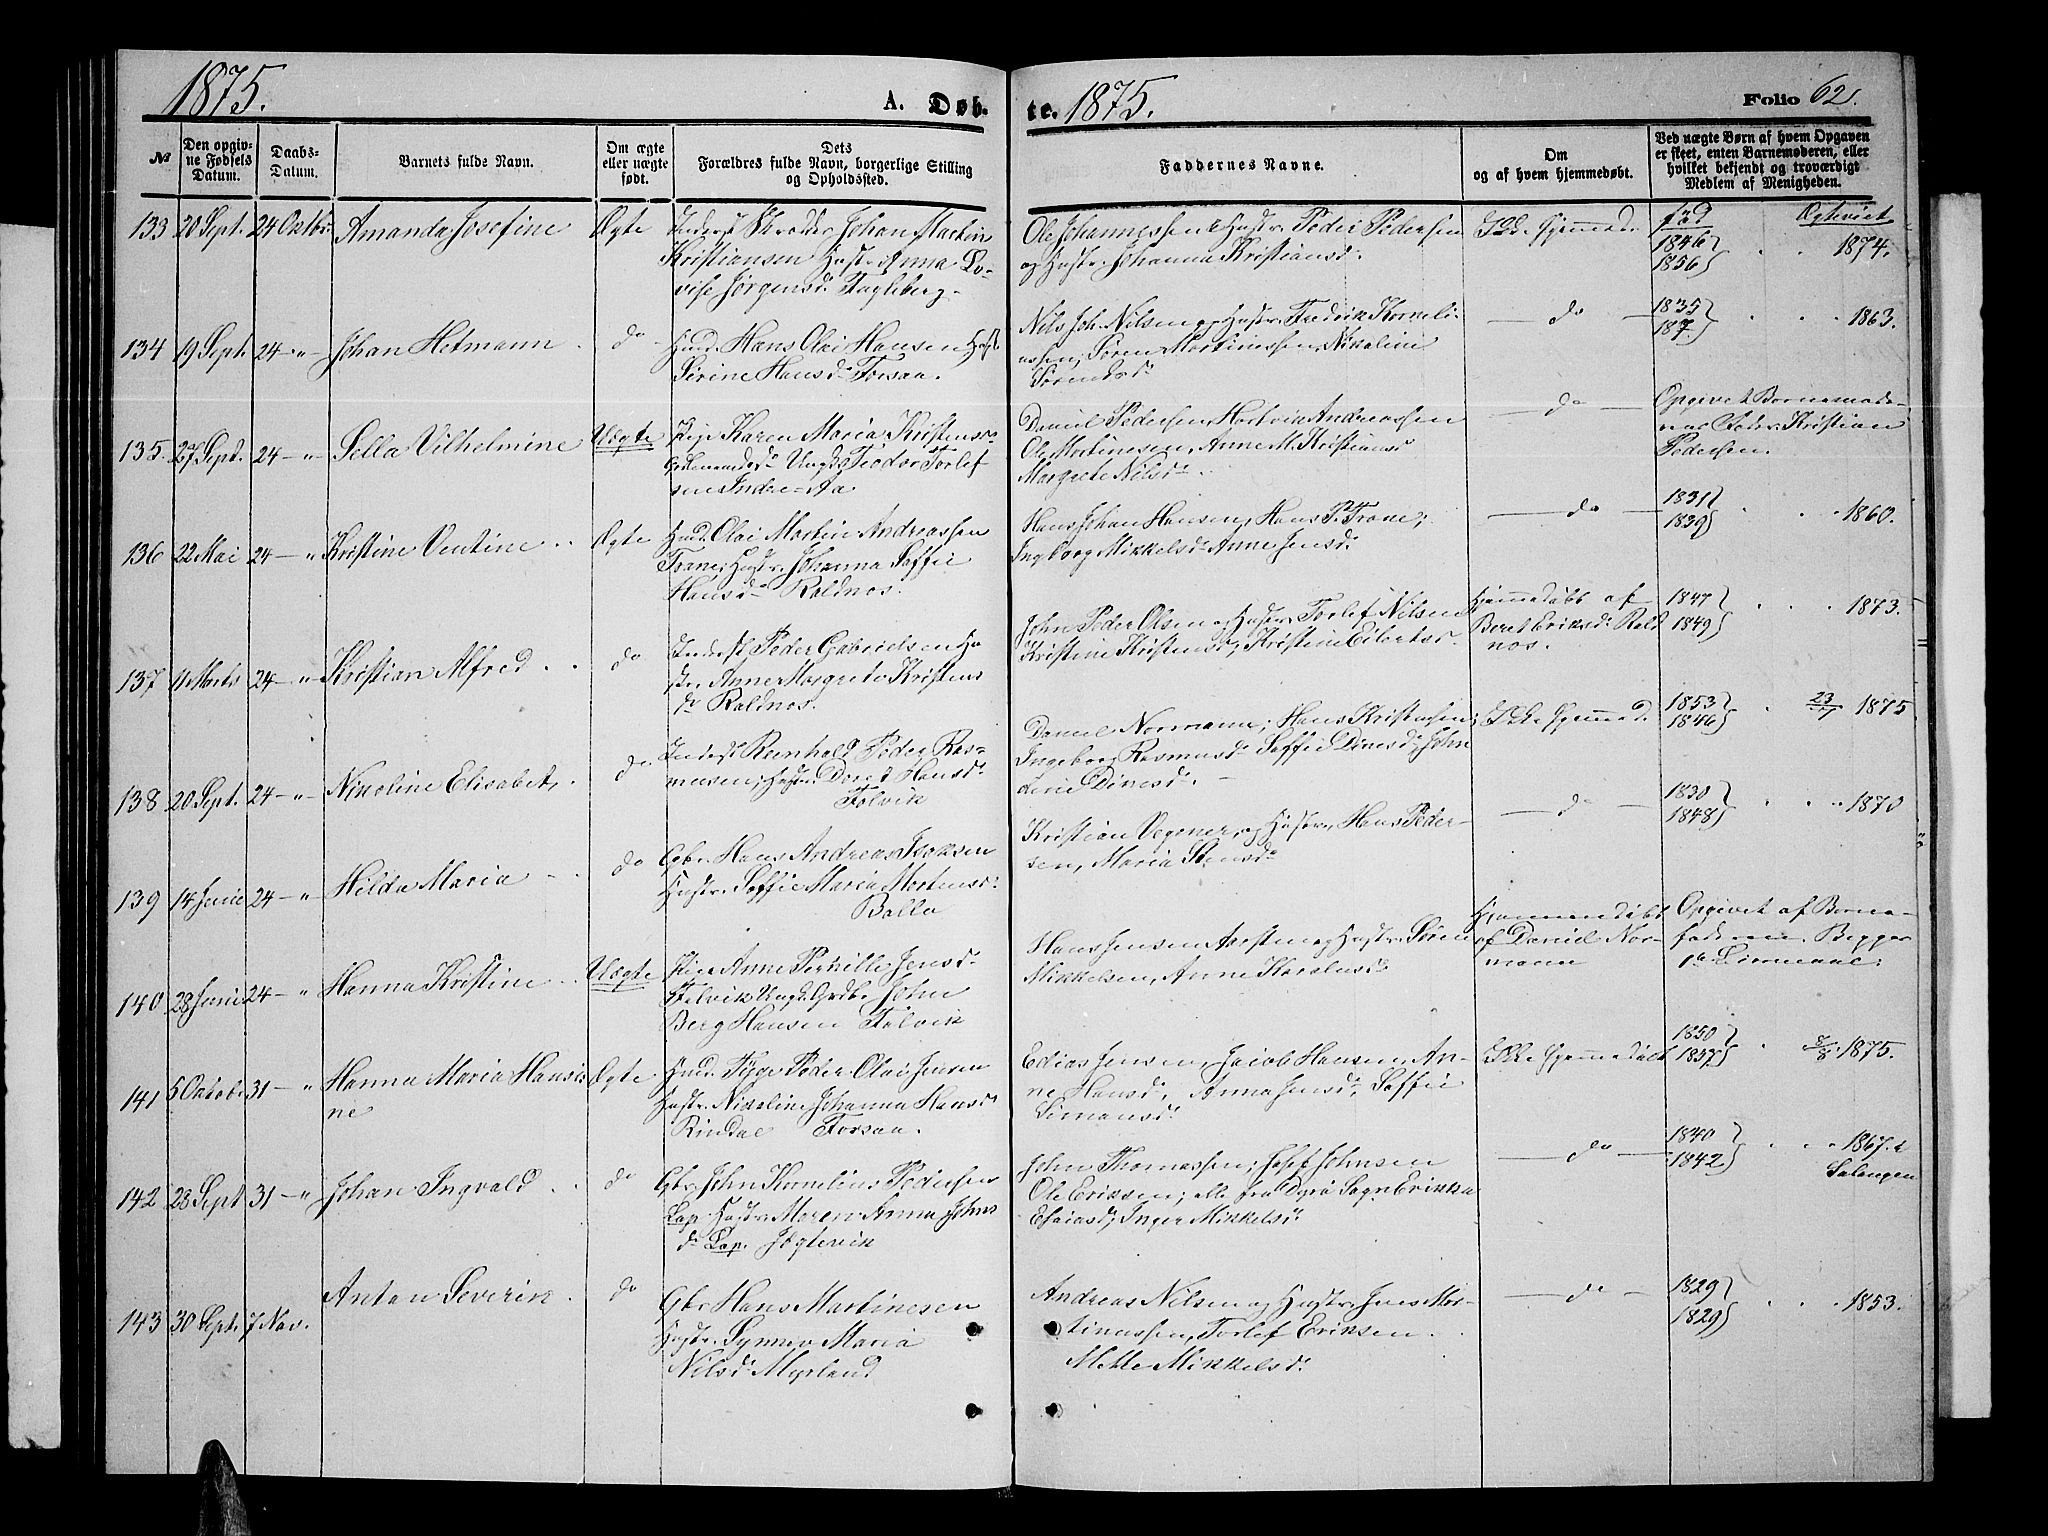 1875.
A. Døb-
te. 1875.
Folio 62.
№
Den opgiv-
ne Fødsels
Datum.
Daabs-
Datum.
Barnets fulde Navn.
Om ægte
eller uægte
født.
Dets
Forældres fulde Navn, borgerlige Stilling
og Opholdssted.
Faddernes Navne.
Om
og af hvem hjemmedøbt.
Ved uægte Børn af hvem Opgaven
er skeet, enten Barnemoderen, eller
hvilket bekjendt og troværdigt
Medlem af Menigheden.
133 20 Sept. 24 Octbr. Amanda Josefine Ægte
Inderst Skrædder Johan Martin
Kristiansen Hustr. Anna Lo-
vise Jørgensd. Fugleberg
Ole Johannessen & Hustr. Peder Pedersen
og Hustr. Johanna Kristiansd.
Ikke hjemmed.
født Ægteviet
1846
1856 1874.
134 19 Sept. 24 — " Johan Hetmann do
Husd. Hans Olai Hansen Hust
Serine Hansd. Forsaa.
Nils Joh. Nilsen og Hustr. Fredrik Korneli-
ussen, Søren Martinussen, Nikoline
Sørensd.
— do —
1835
183 1863.
135. 27 Sept. 24 — " Sella Vilhelmine Uægte
Pige Karen Maria Kristensd.
Ungk. Peder Torlef
sen Indre-Aa
Daniel Pedersen, Hartvik Andreassen
Ole Martinesen, Anne M. Kristiansd
Margrete Nilsd.
— do —
Opgivet Barnemode-
rens Fader Kristian
Pedersen.
136 22 Mai 24 — " Kristine Ventine Ægte
Husd. Olai Martin Andreassen
Trane, Hustr. Johanna Soffie
Hansd. Roldnos.
Hans Johan Hansen, Hans P. Trane,
Ingeborg Mikkelsd. Anne Jensd.
— do —
1831
1839 1860.
137 11 Marts 24 — " Kristian Alfred do
Inderst Peder Gabrielsen Hu
str. Anne Margrete Kristens
d. Roldnos.
John Peder Olsen og Hustr. Torlef Nilsen
Kristine Kristensd., Kristine Eilertsd.
Hjemmedøbt af
Beret Eriksd. Rold
nos.
1847
1849 1873.
138 20 Sept. 24 — " Nikoline Elisabet do
Inderst Reinhold Peder Ras-
mussen, Hustr. Doret Hansd.
Folvik
Daniel Normann, Hans Kristensen,
Ingeborg Rasmusd. Soffie Dinesd., John
Dinesd.
Ikke hjemmed.
1853
1846 23/7 1875
139 14 Junie 24 — " Hilda Maria do
Gbr. Hans Andreas Isaksen
Hustr. Soffie Maria Mortensd.
Balla
Kristian Vegener og Hustr., Hans Peder-
sen, Maria Stensd.
— do —
1830
1848 1870
140 28 Junie 24 — " Hanna Kristine Uægte
Pige Anne Pernille Jensd.
Folvik Ungk. Grdbr. John
Berg Hansen Folvik
Hans Jensen og Hustr. Søren
Mikkelsen, Anne Karolusd.
Hjemmedøbt
af Daniel Nor-
mann
Opgivet af Barne-
faderen.
141 5 Oktober 31 — " Hanna Maria Hansi-
ne Ægte
Husd. Peder Olai Jensen
Hustr. Nikoline Johanna Hansd
Rindal Forsaa.
Edias Jensen, Jacob Hansen, An-
ne Hansd., Anna Jensd., Soffie
Simonsd.
Ikke hjemmedøbt
1850
1837 8/8 1875.
142 28 Sept 31 — " Johan Ingvald do
Gbr. John Kornelius Pedersen
Lap. Hustr. Maren Anna Johns
d. Lap. Jægtevik
John Thomassen, Josef Johnsen
Ole Eriksen, alle fra Dyrø Sogn Erikka
Esaiasd., Inger Mikkelsd.
— do —
1840
1842 1867. i
Salangen
143 30 Sept. 7 Nov. Anton Severin do
Gbr. Hans Martinesen
Hustr. Synnev Maria
Nilsd. Myrland
Andreas Nilsen og Hustr. Jens Mor-
tinussen, Torlef Eriksen.
Mette Mikkelsd.
— do —
1829
1829 1853.